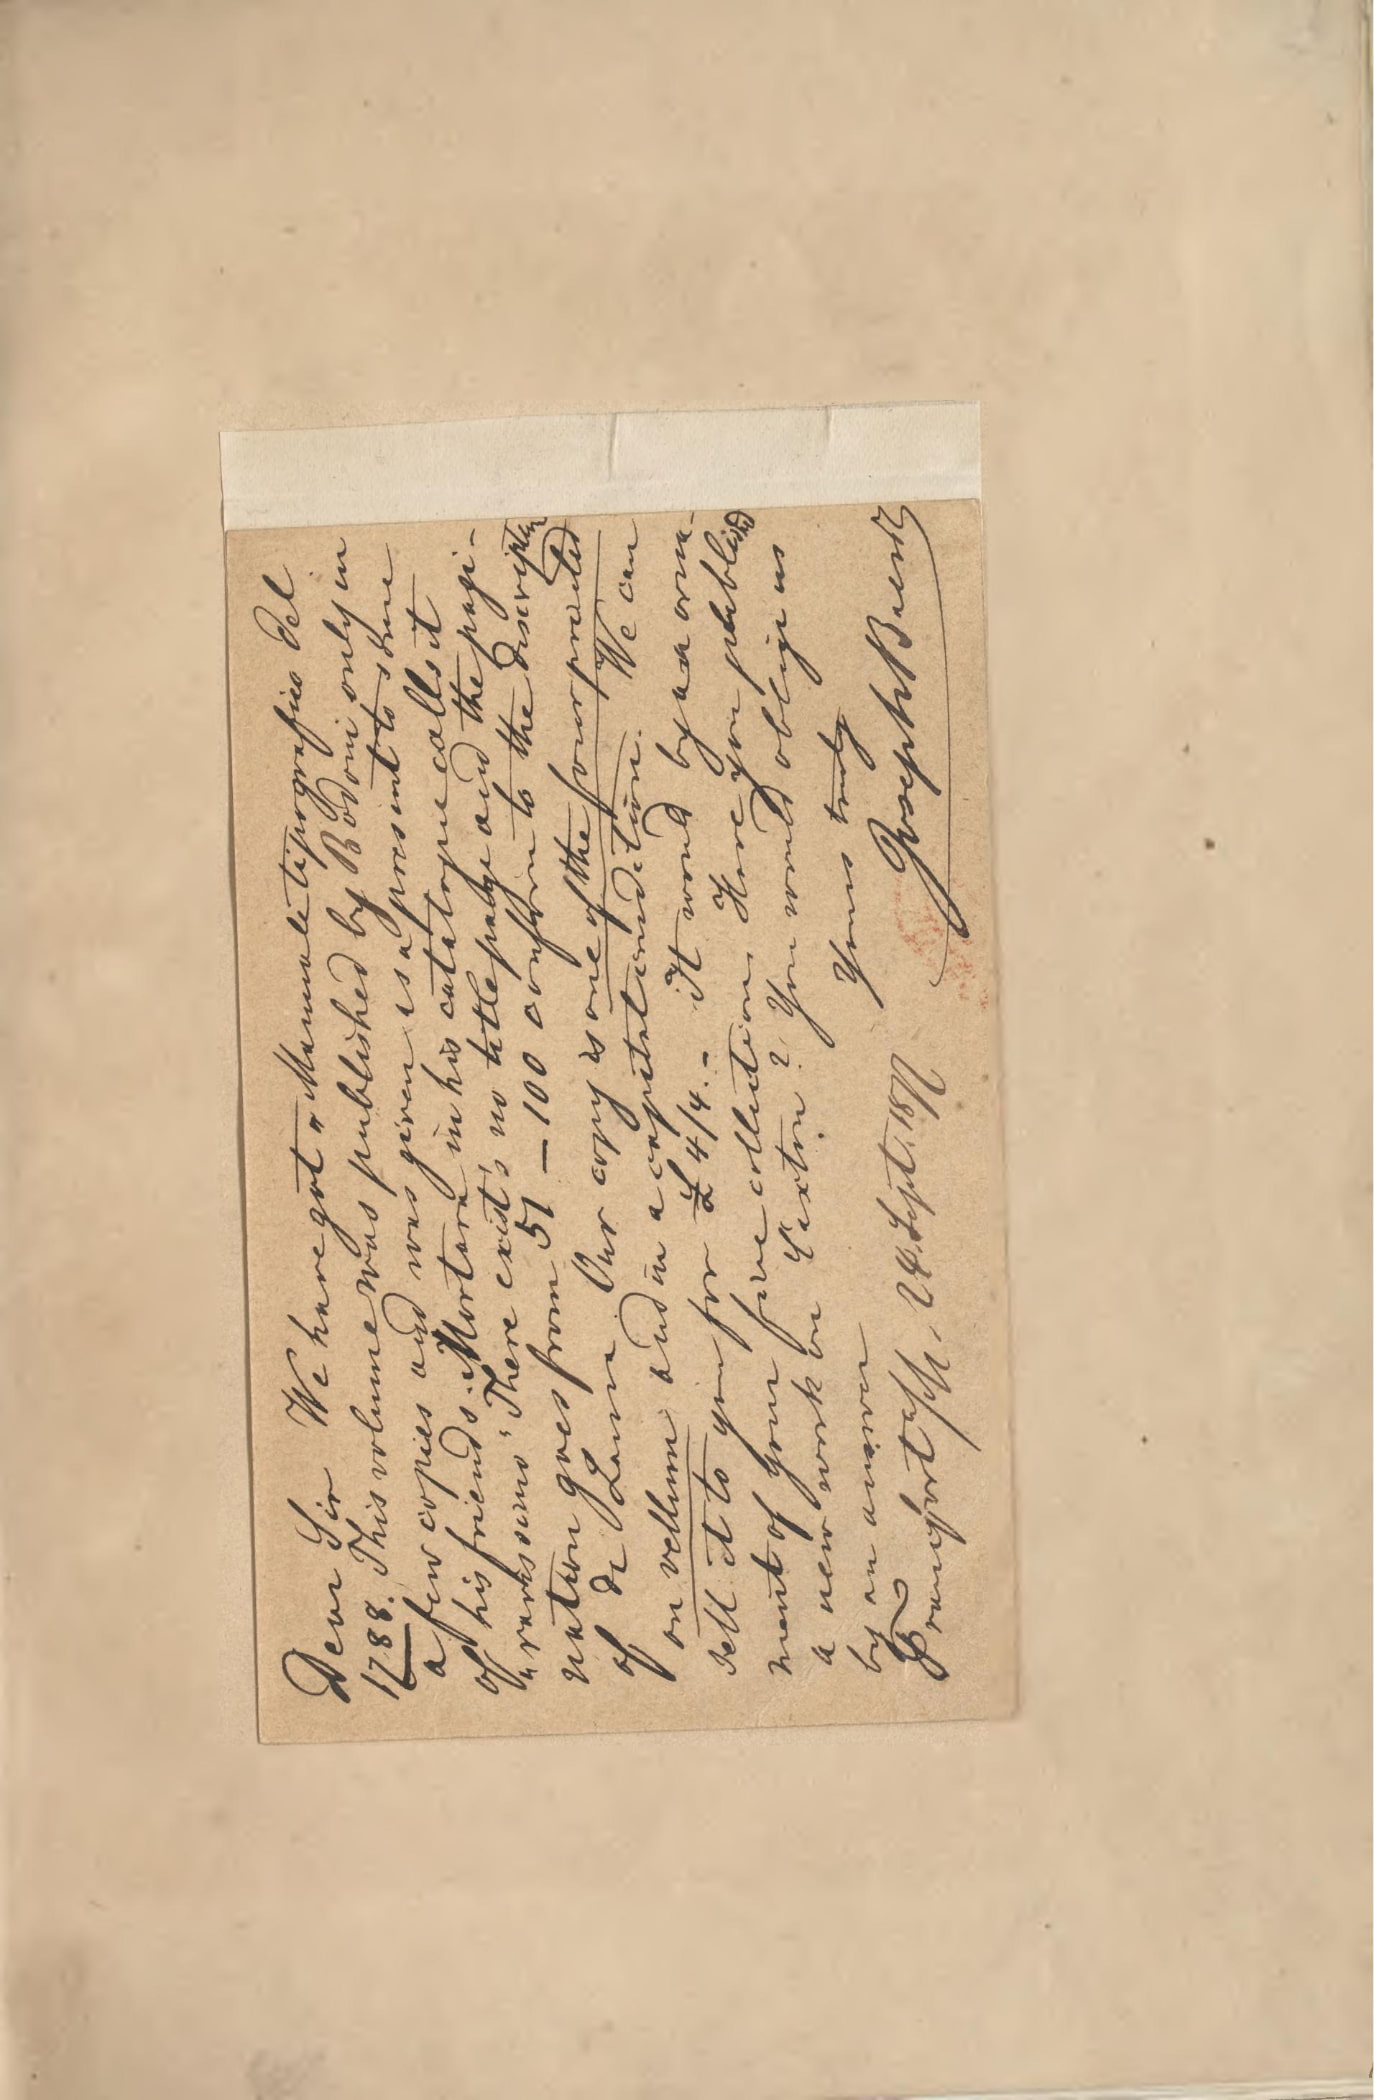 Dear Sir We have got „Manuale tipografico del
1788. This volume was published by Bodoni only in
a few copies and was given as a present to some
of his friends. Mortara in his catalogue calls it
„rarissimo‟ There exist's no title page and the pagi-
nation goes from 51 – 100 conform to the description
of de Lama. Our copy is one of the four printed
on vellum and in a capital condition. We can
sell it to you for £ 4/4. – It would by an orna-
ment of your fine collection. Have you published
a new work on Caxton? You would oblige us
by an answer Yours truly
Francfort a/M. 24. Sept. 1877 Joseph Baer & Co